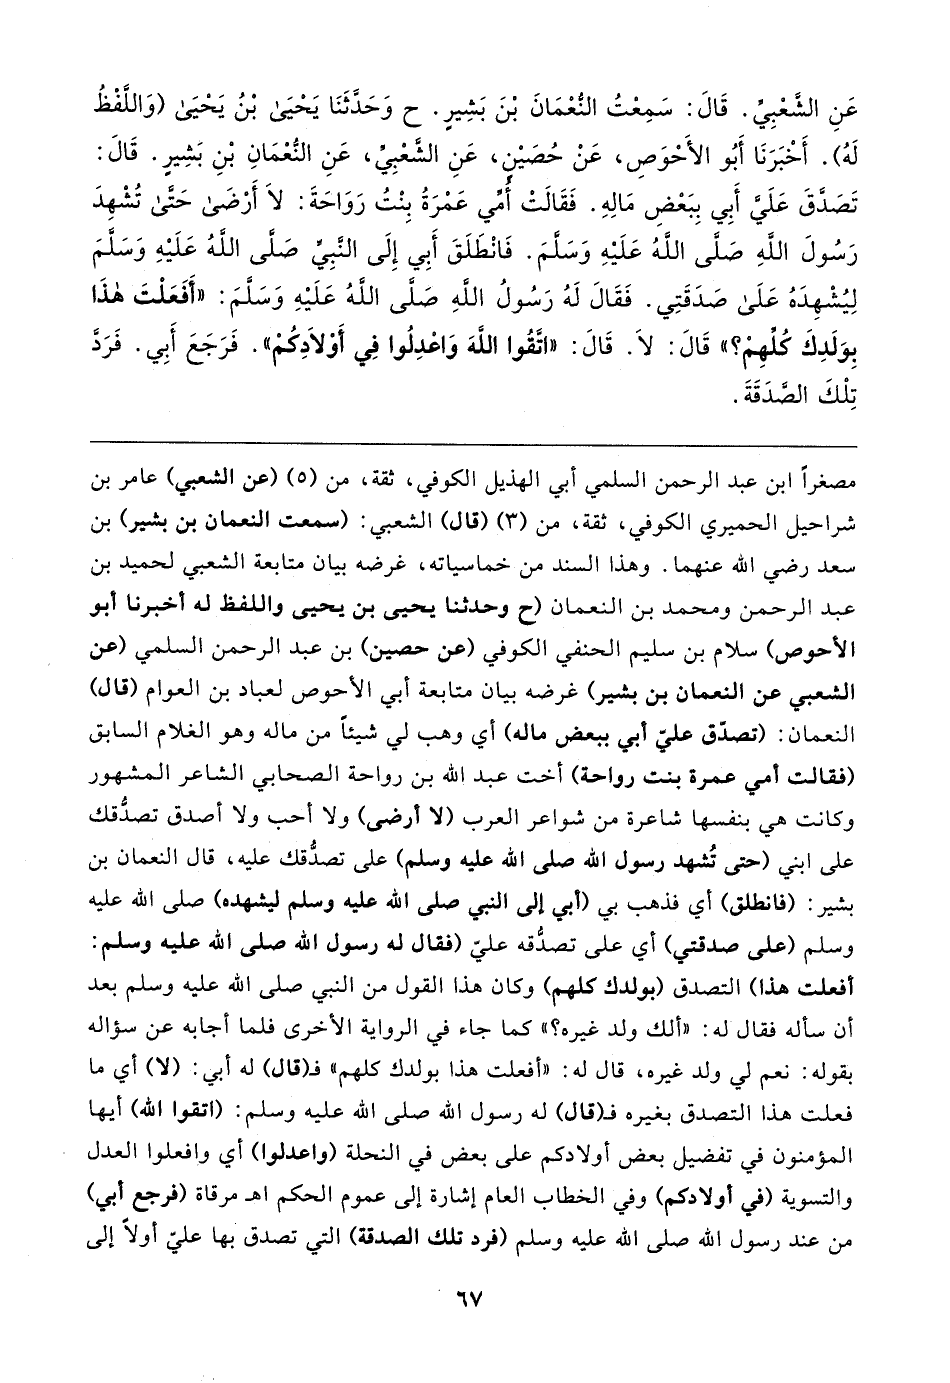 عَنِ الشَّعْبِيِّ. قَالَ: سَمِعْتُ النُّعْمَانَ بْنَ بَشِيرٍ. ح وَحَدَّثَنَا يَحْيَىٰ بْنُ يَحْيَىٰ (وَاللَّفْظُ
لَهُ). أَخْبَرَنَا أَبُو الأَحْوَصِ، عَنْ حُصَيْنٍ، عَنِ الشَّعْبِيِّ، عَنِ النُّعْمَانِ بْنِ بَشِيرٍ. قَالَ:
تَصَدَّقَ عَلَيَّ أَبِي بِبَعْضِ مَالِهِ. فَقَالَتْ أُمِّي عَمْرَةُ بِنْتُ رَوَاحَةَ: لاَ أَرْضَىٰ حَتَّىٰ تُشْهِدَ
رَسُولَ اللَّهِ صَلَّى اللَّهُ عَلَيْهِ وَسَلَّمَ. فَانْطَلَقَ أَبِي إِلَى النَّبِيِّ صَلَّى اللَّهُ عَلَيْهِ وَسَلَّمَ
لِيُشْهِدَهُ عَلَىٰ صَدَقَتِي. فَقَالَ لَهُ رَسُولُ اللَّهِ صَلَّى اللَّهُ عَلَيْهِ وَسَلَّمَ: «أَفَعَلْتَ هٰذَا
بِوَلَدِكَ كُلِّهِمْ؟» قَالَ: لاَ. قَالَ: «اتَّقُوا اللَّهَ وَاعْدِلُوا فِي أَوْلاَدِكُمْ». فَرَجَعَ أَبِي. فَرَدَّ
تِلْكَ الصَّدَقَةَ.
مصغراً ابن عبد الرحمن السلمي أبي الهذيل الكوفي، ثقة، من (٥) (عن الشعبي) عامر بن
شراحيل الحميري الكوفي، ثقة، من (٣) (قال) الشعبي: (سمعت النعمان بن بشير) بن
سعد رضي الله عنهما. وهذا السند من خماسياته، غرضه بيان متابعة الشعبي لحميد بن
عبد الرحمن ومحمد بن النعمان (ح وحدثنا يحيى بن يحيى واللفظ له أخبرنا أبو
الأحوص) سلام بن سليم الحنفي الكوفي (عن حصين) بن عبد الرحمن السلمي (عن
الشعبي عن النعمان بن بشير) غرضه بيان متابعة أبي الأحوص لعباد بن العوام (قال)
النعمان: (تصدّق عليّ أبي ببعض ماله) أي وهب لي شيئاً من ماله وهو الغلام السابق
(فقالت أمي عمرة بنت رواحة) أخت عبد الله بن رواحة الصحابي الشاعر المشهور
وكانت هي بنفسها شاعرة من شواعر العرب (لا أرضى) ولا أحب ولا أصدق تصدُّقك
على ابني (حتى تُشهد رسول الله صلى الله عليه وسلم) على تصدُّقك عليه، قال النعمان بن
بشير: (فانطلق) أي فذهب بي (أبي إلى النبي صلى الله عليه وسلم ليشهده) صلى الله عليه
وسلم (على صدقتي) أي على تصدُّقه عليّ (فقال له رسول الله صلى الله عليه وسلم:
أفعلت هذا) التصدق (بولدك كلهم) وكان هذا القول من النبي صلى الله عليه وسلم بعد
أن سأله فقال له: «ألك ولد غيره؟» كما جاء في الرواية الأخرى فلما أجابه عن سؤاله
بقوله: نعم لي ولد غيره، قال له: «أفعلت هذا بولدك كلهم» فـ(قال) له أبي: (لا) أي ما
فعلت هذا التصدق بغيره فـ(قال) له رسول الله صلى الله عليه وسلم: (اتقوا الله) أيها
المؤمنون في تفضيل بعض أولادكم على بعض في النحلة (واعدلوا) أي وافعلوا العدل
والتسوية (في أولادكم) وفي الخطاب العام إشارة إلى عموم الحكم اهـ مرقاة (فرجع أبي)
من عند رسول الله صلى الله عليه وسلم (فرد تلك الصدقة) التي تصدق بها عليّ أولاً إلى
٦٧